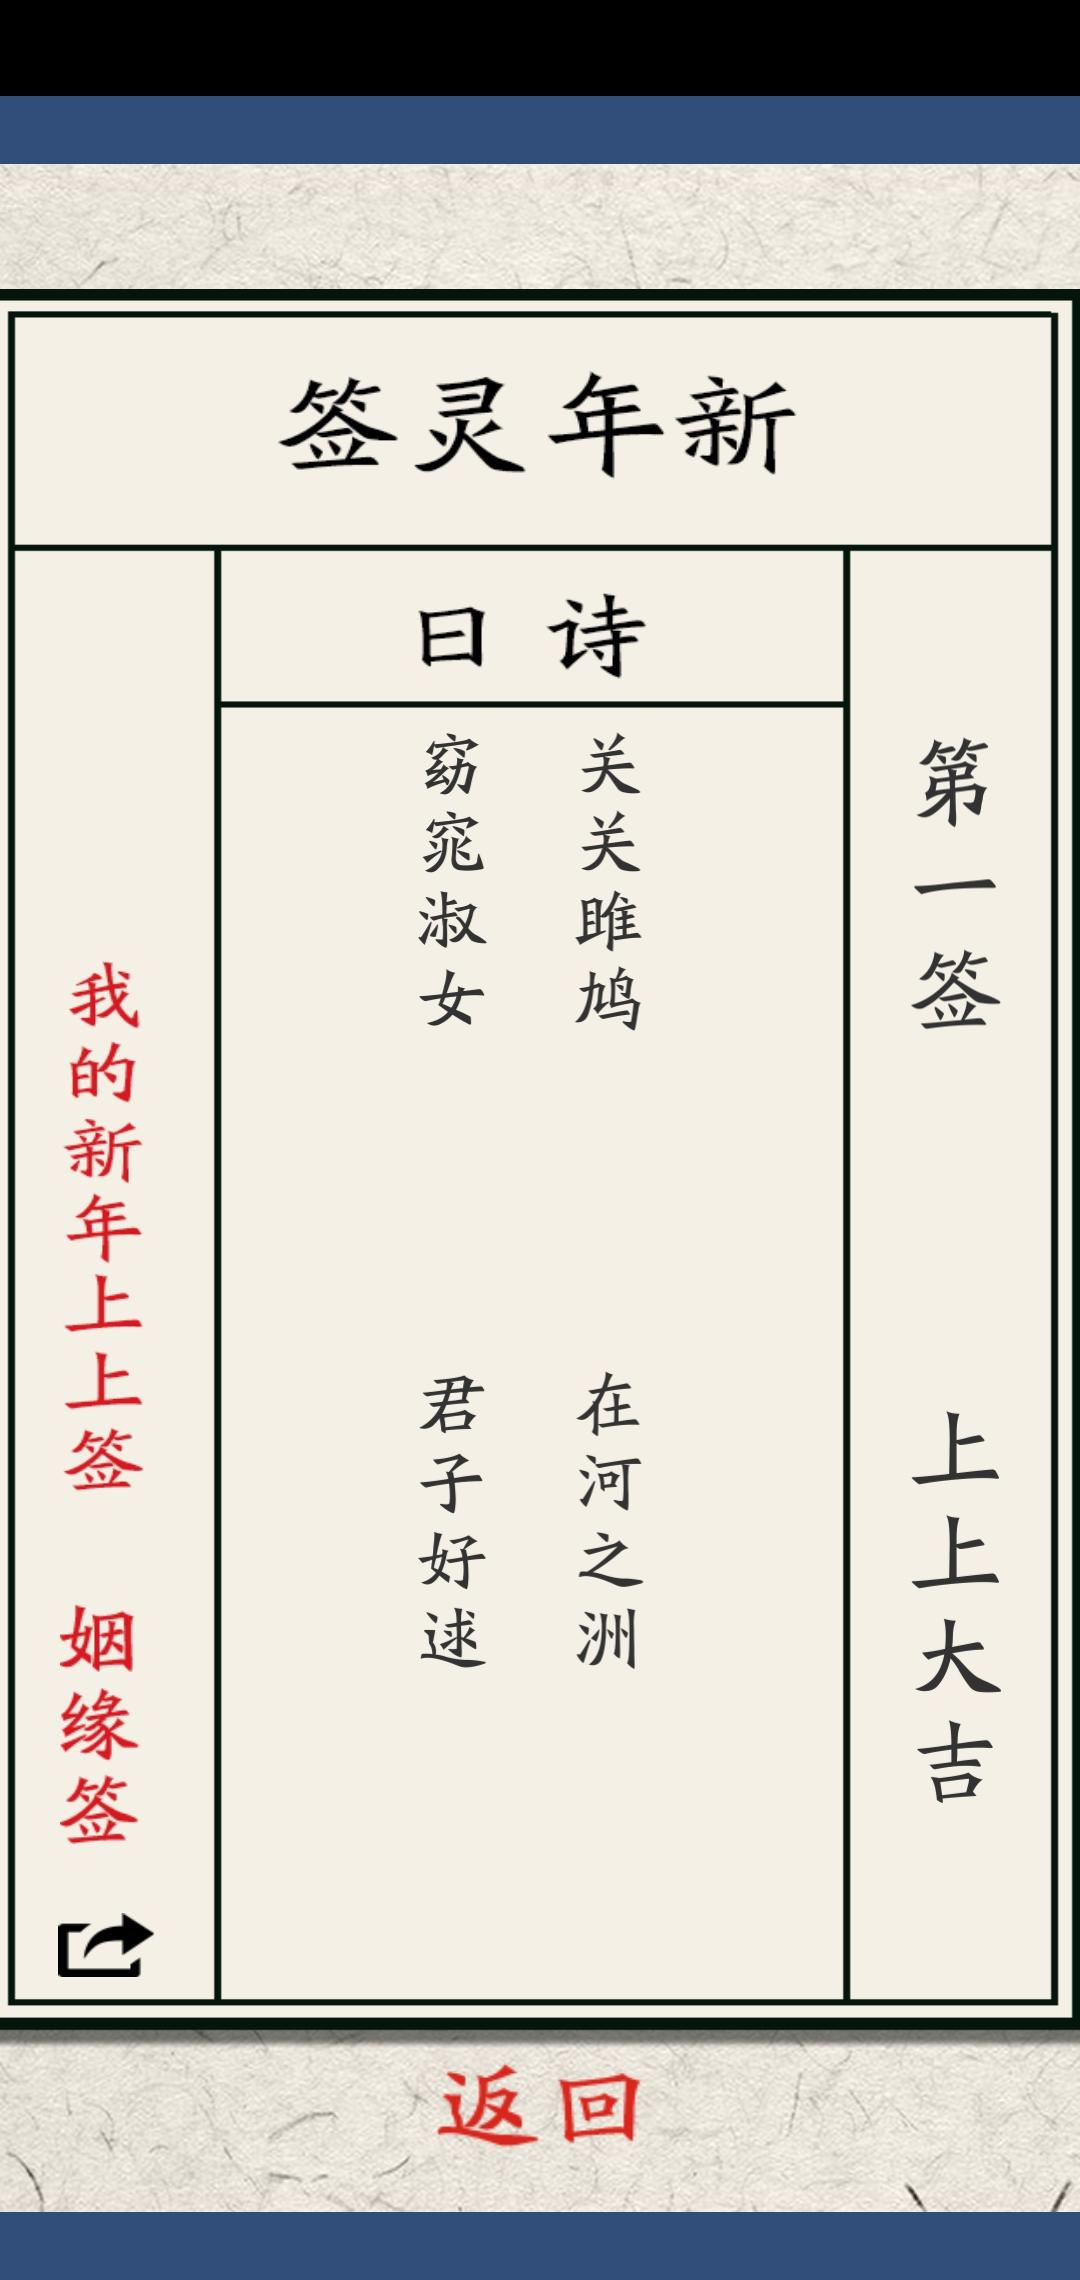 新年灵签
第一签
上上大吉
诗曰
关关雎鸠
在河之洲
窈窕淑女
君子好逑
我的新年上上签
姻缘签
返回